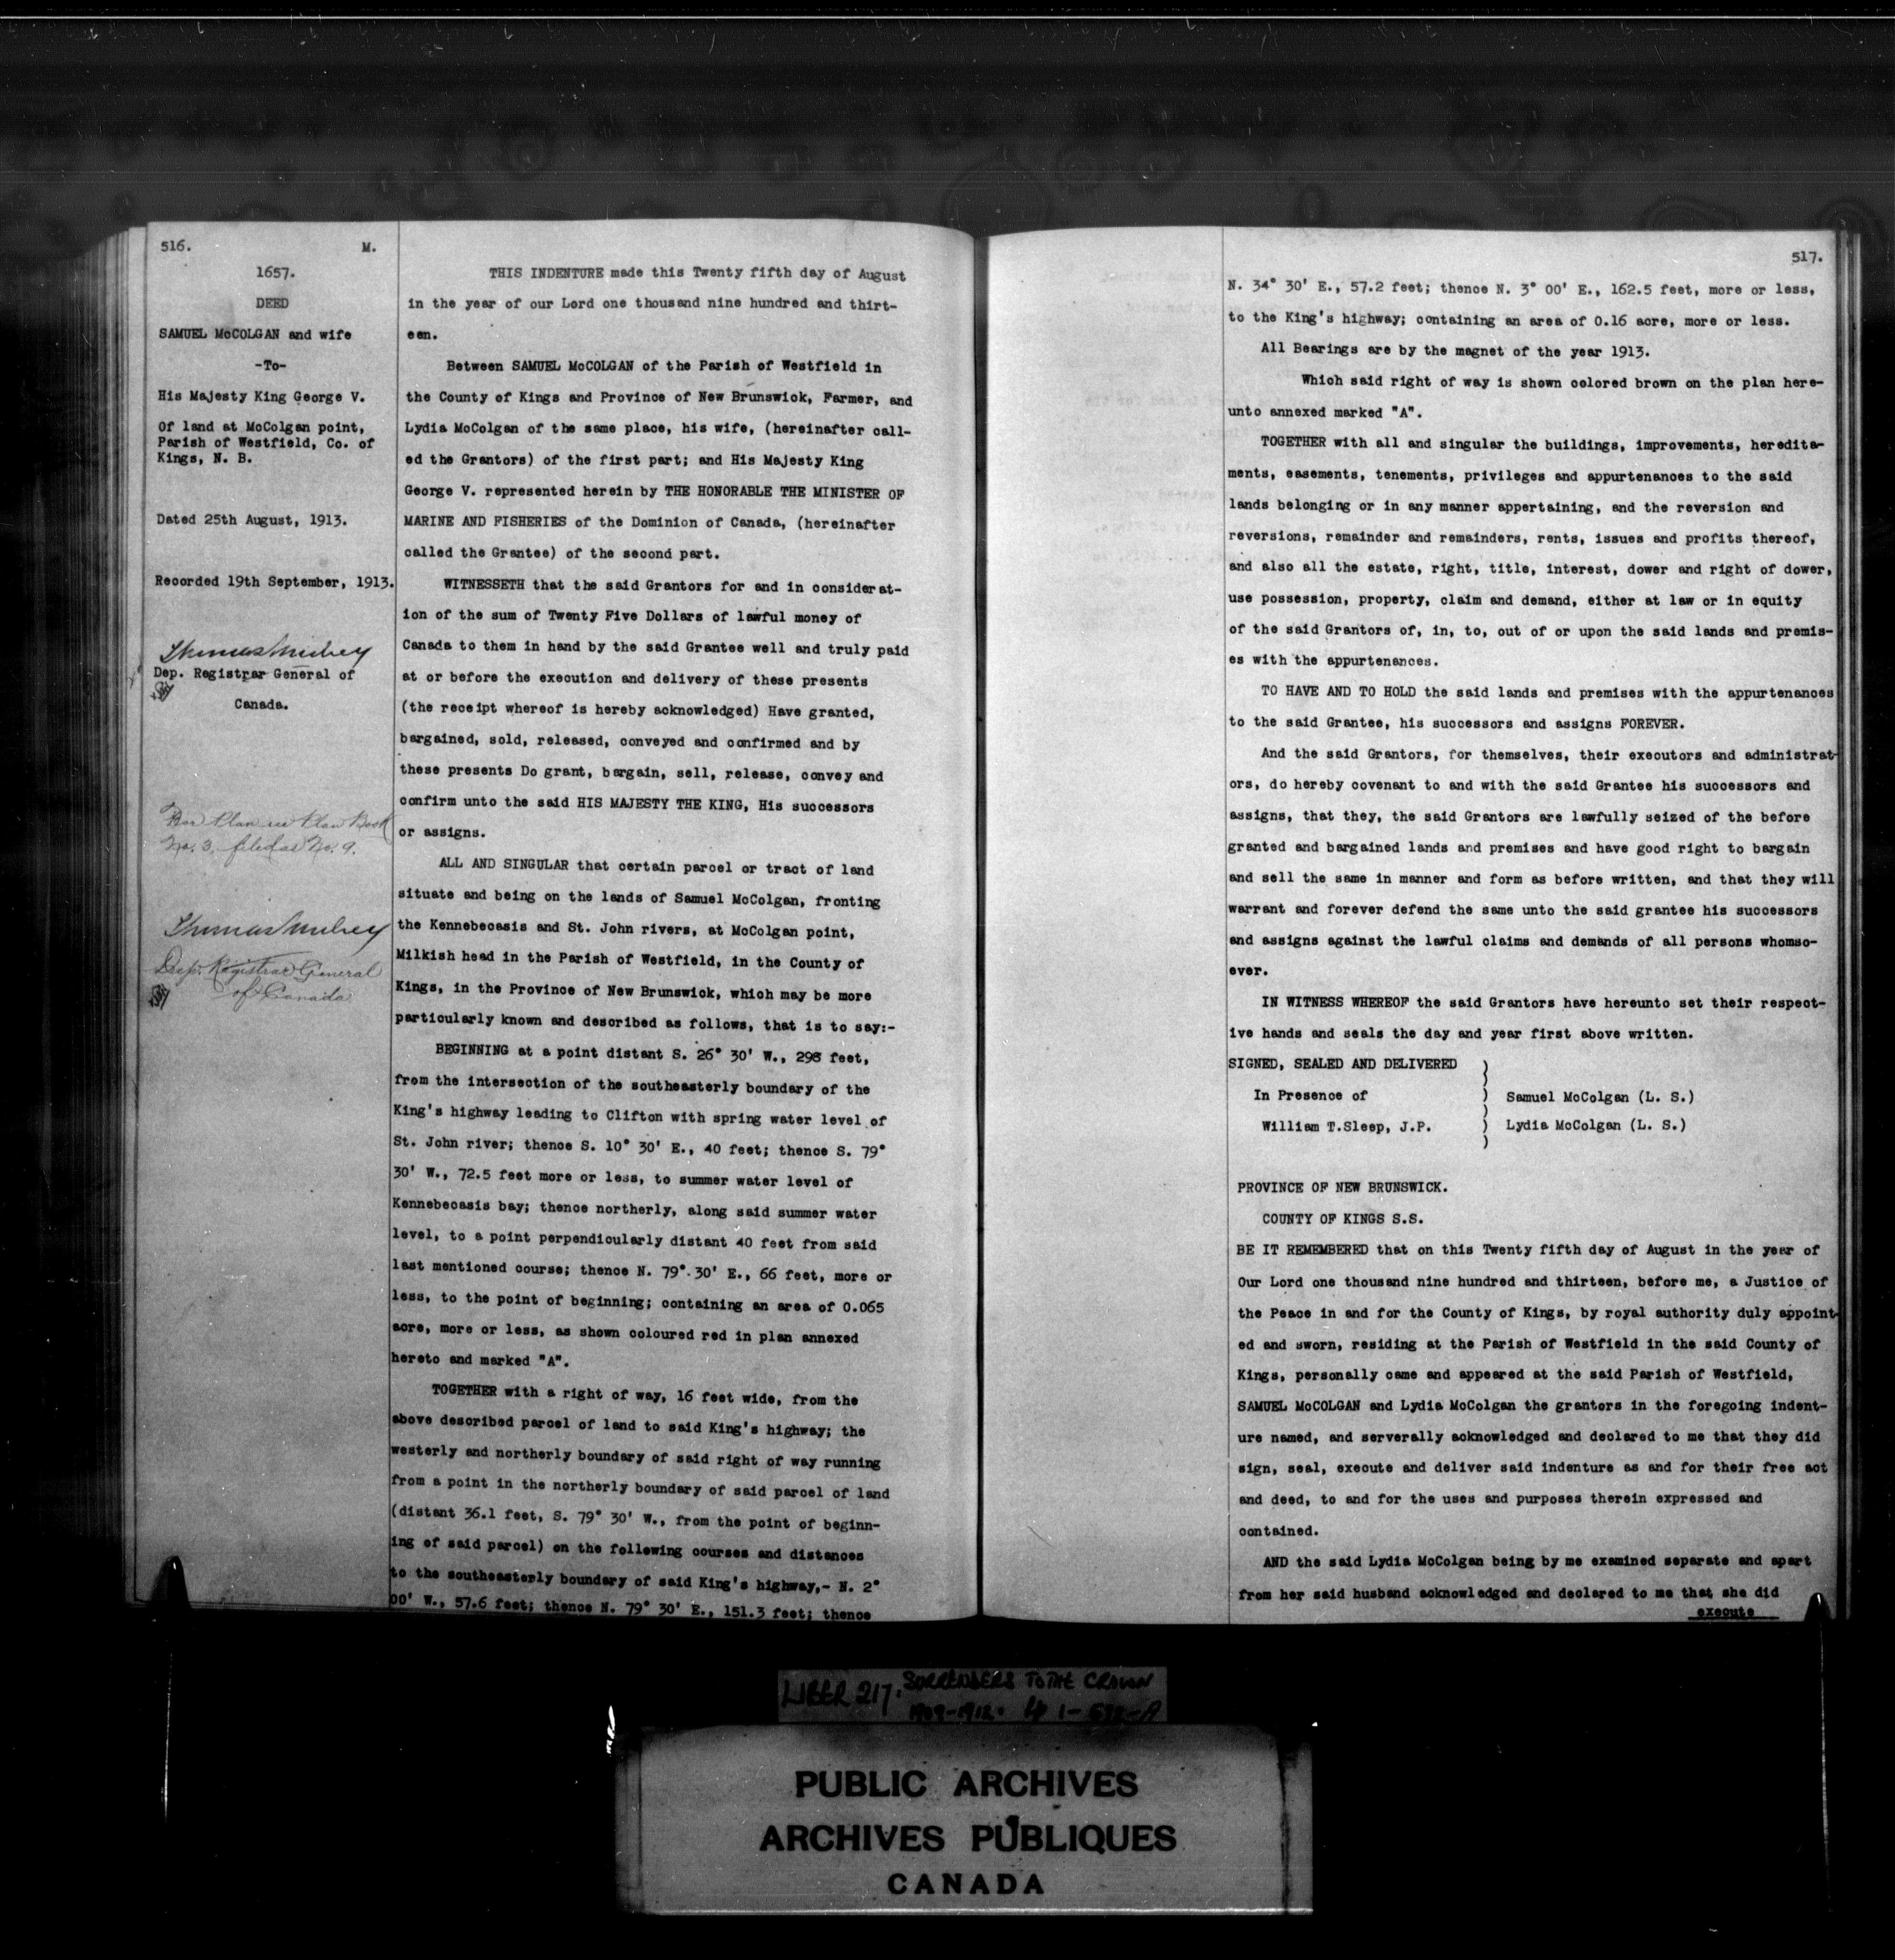 516. M.
1657.
DEED
SAMUEL McCOLGAN and wife
-To-
His Majesty King George V.
Of land at McColgan point,
Parish of Westfield, Co. of
Kings, N. B.
Dated 25th August, 1913.
Recorded 19th September, 1913.
Thomas Mulvey
Dep. Registrar General of
Canada.
For Plan see Plan Book
No. 3, filed as No. 9.
Thomas Mulvey
Dep. Registrar General
of Canada
THIS INDENTURE made this Twenty fifth day of August
in the year of our Lord one thousand nine hundred and thirt-
een.
Between SAMUEL McCOLGAN of the Parish of Westfield in
the County of Kings and Province of New Brunswick, Farmer, and
Lydia McColgan of the same place, his wife, (hereinafter call-
ed the Grantors) of the first part; and His Majesty King
George V. represented herein by THE HONORABLE THE MINISTER OF
MARINE AND FISHERIES of the Dominion of Canada, (hereinafter
called the Grantee) of the second part.
WITNESSETH that the said Grantors for and in considerat-
ion of the sum of Twenty Five Dollars of lawful money of
Canada to them in hand by the said Grantee well and truly paid
at or before the execution and delivery of these presents
(the receipt whereof is hereby acknowledged) Have granted,
bargained, sold, released, conveyed and confirmed and by
these presents Do grant, bargain, sell, release, convey and
confirm unto the said HIS MAJESTY THE KING, His successors
or assigns.
ALL AND SINGULAR that certain parcel or tract of land
situate and being on the lands of Samuel McColgan, fronting
the Kennebecasis and St. John rivers, at McColgan point,
Milkish head in the Parish of Westfield, in the County of
Kings, in the Province of New Brunswick, which may be more
particularly known and described as follows, that is to say:-
BEGINNING at a point distant S. 26° 30' W., 298 feet,
from the intersection of the southeasterly boundary of the
King's highway leading to Clifton with spring water level of
St. John river; thence S. 10° 30' E., 40 feet; thence S. 79°
30' W., 72.5 feet more or less, to summer water level of
Kennebecasis bay; thence northerly, along said summer water
level, to a point perpendicularly distant 40 feet from said
last mentioned course; thence N. 79° 30' E., 66 feet, more or
less, to the point of beginning; containing an area of 0.065
acre, more or less, as shown coloured red in plan annexed
hereto and marked "A".
TOGETHER with a right of way, 16 feet wide, from the
above described parcel of land to said King's highway; the
westerly and northerly boundary of said right of way running
from a point in the northerly boundary of said parcel of land
(distant 36.1 feet, S. 79° 30' W., from the point of beginn-
ing of said parcel) on the following courses and distances
to the southeasterly boundary of said King's highway,- N. 2°
00' W., 57.6 feet; thence N. 79° 30' E., 151.3 feet; thence
517.
N. 34° 30' E., 57.2 feet; thence N. 3° 00' E., 162.5 feet, more or less,
to the King's highway; containing an area of 0.16 acre, more or less.
All Bearings are by the magnet of the year 1913.
Which said right of way is shown colored brown on the plan here-
unto annexed marked "A".
TOGETHER with all and singular the buildings, improvements, heredita-
ments, easements, tenements, privileges and appurtenances to the said
lands belonging or in any manner appertaining, and the reversion and
reversions, remainder and remainders, rents, issues and profits thereof,
and also all the estate, right, title, interest, dower and right of dower,
use possession, property, claim and demand, either at law or in equity
of the said Grantors of, in, to, out of or upon the said lands and premis-
es with the appurtenances.
TO HAVE AND TO HOLD the said lands and premises with the appurtenances
to the said Grantee, his successors and assigns FOREVER.
And the said Grantors, for themselves, their executors and administrat-
ors, do hereby covenant to and with the said Grantee his successors and
assigns, that they, the said Grantors are lawfully seized of the before
granted and bargained lands and premises and have good right to bargain
and sell the same in manner and form as before written, and that they will
warrant and forever defend the same unto the said grantee his successors
and assigns against the lawful claims and demands of all persons whomso-
ever.
IN WITNESS WHEREOF the said Grantors have hereunto set their respect-
ive hands and seals the day and year first above written.
SIGNED, SEALED AND DELIVERED )
In Presence of ) Samuel McColgan (L. S.)
William T.Sleep, J.P. ) Lydia McColgan (L. S.)
PROVINCE OF NEW BRUNSWICK.
COUNTY OF KINGS S.S.
BE IT REMEMBERED that on this Twenty fifth day of August in the year of
Our Lord one thousand nine hundred and thirteen, before me, a Justice of
the Peace in and for the County of Kings, by royal authority duly appoint-
ed and sworn, residing at the Parish of Westfield in the said County of
Kings, personally came and appeared at the said Parish of Westfield,
SAMUEL McCOLGAN and Lydia McColgan the grantors in the foregoing indent-
ure named, and serverally acknowledged and declared to me that they did
sign, seal, execute and deliver said indenture as and for their free act
and deed, to and for the uses and purposes therein expressed and
contained.
AND the said Lydia McColgan being by me examined separate and apart
from her said husband acknowledged and declared to me that she did
execute
LIBER 217. SURRENDERS TO THE CROWN
1909-1912.
PUBLIC ARCHIVES
ARCHIVES PUBLIQUES
CANADA